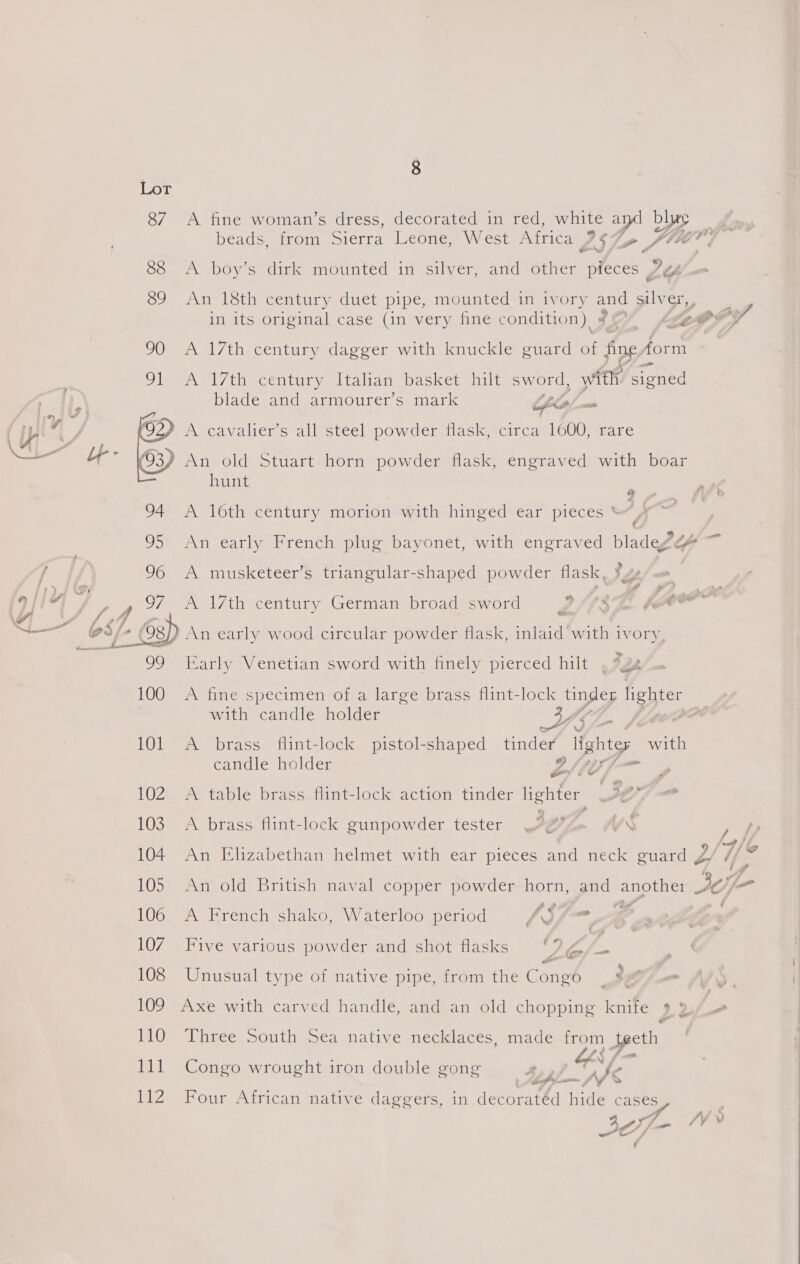 8
Lot
87 A fine woman's dress, decorated in red, white and blue
beads, from Sierra Leone, West Africa
88 A boy's dirk mounted in silver, and other pieces
89 An 18th century duet pipe, mounted in ivory and silver,
in its original case (in very fine condition)
90 A 17th century dagger with knuckle guard of fine form
91 A 17th century Italian basket hilt sword, with signed
blade and armourer's mark
92 A cavalier's all steel powder flask, circa 1600, rare
93 An old Stuart horn powder flask, engraved with boar
hunt
94 A 16th century morion with hinged ear pieces
95 An early French plug bayonet, with engraved blade
96 A musketeer's triangular-shaped powder flask
97 A 17th century German broad sword
98 An early wood circular powder flask, inlaid with ivory
99 Early Venetian sword with finely pierced hilt
100 A fine specimen of a large brass flint-lock tinder lighter
with candle holder
101 A brass flint-lock pistol-shaped tinder lighter with
candle holder
102 A table brass flint-lock action tinder lighter
103 A brass flint-lock gunpowder tester
104 An Elizabethan helmet with ear pieces and neck guard
105 An old British naval copper powder horn, and another
106 A French shako, Waterloo period
107 Five various powder and shot flasks
108 Unusual type of native pipe, from the Congo
109 Axe with carved handle, and an old chopping knife
110 Three South Sea native necklaces, made from teeth
111 Congo wrought iron double gong
112 Four African native daggers, in decorated hide cases